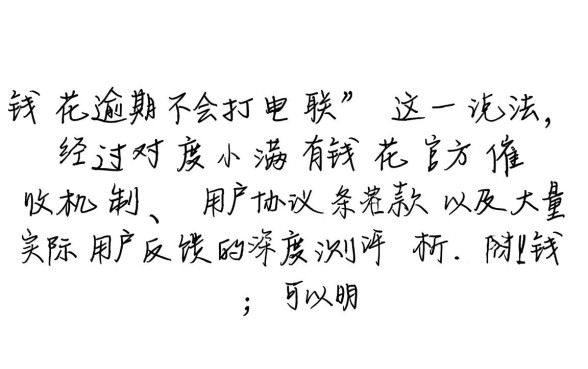 钱花逾期不会打电联” 这一说法,
经过对度小满有钱花官方催
收机制、用户协议条若款以及大量
实际用户反馈的深度测评 析. 附!钱
; 可以明